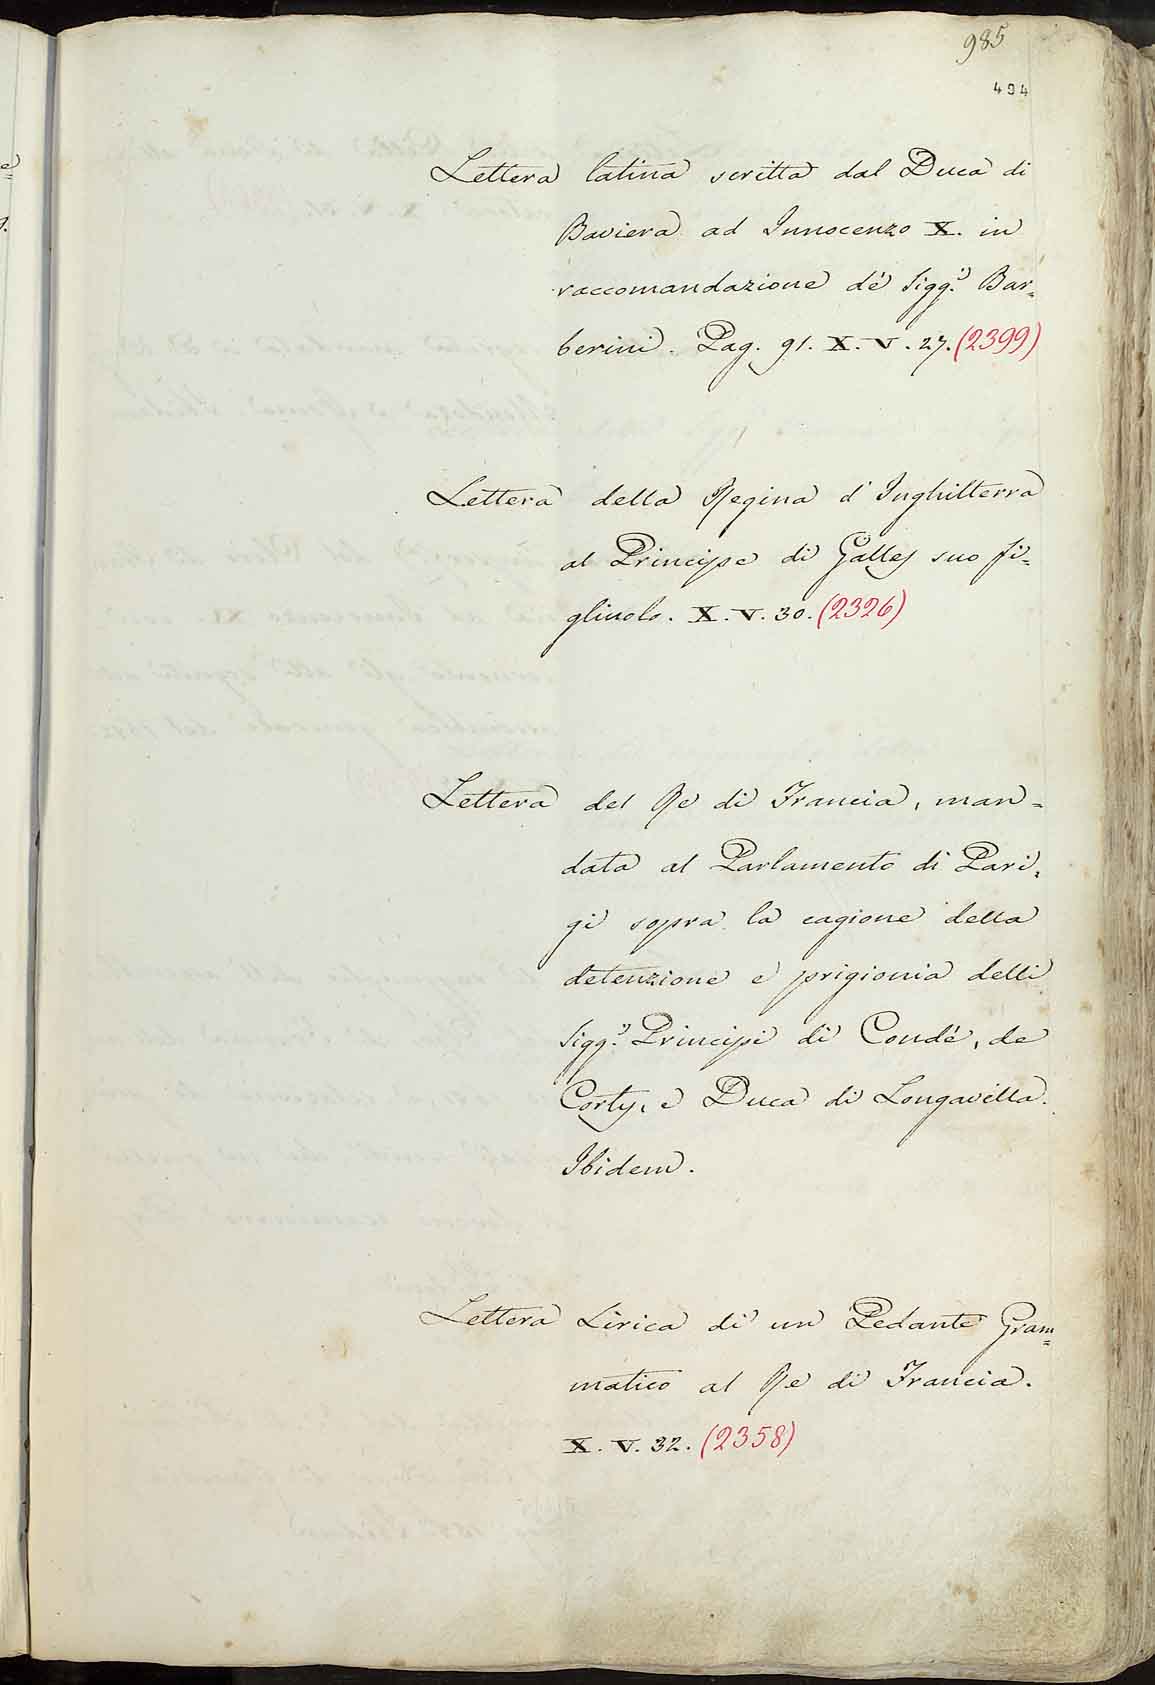 985
494
Lettera latina scritta dal Duca di
Baviera ad Innocenzo X. in
raccomandazione de' Sigg.i Bar=
berini. Pag. 91. X. V. 27. (2399)
Lettera della Regina d'Inghilterra
al Principe di Galles suo fi=
gliuolo. X. V. 30. (2326)
Lettera del Re di Francia, man=
data al Parlamento di Pari=
gi sopra la cagione della
detenzione e prigionia delli
Sigg.i Principi di Condé, de
Corty, e Duca di Longavilla.
Ibidem.
Lettera Lirica di un Pedante Gram=
matico al Re di Francia.
X. V. 32. (2358)